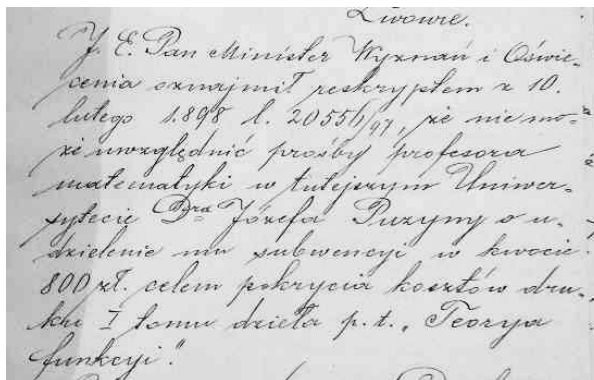 Lwowie.
J. E. Pan Minister Wyznań i Oświe-
cenia oznajmił reskryptem z 10.
lutego 1898 l. 2055/97, że nie mo-
że uwzględnić prośby profesora
matematyki w tutejszym Uniwer-
sytecie Dra Józefa Puzyny o u-
dzielenie mu subwencyi w kwocie
800 zł. celem pokrycia kosztów dru-
ku I tomu dzieła p. t. „Teorya
funkcyi".